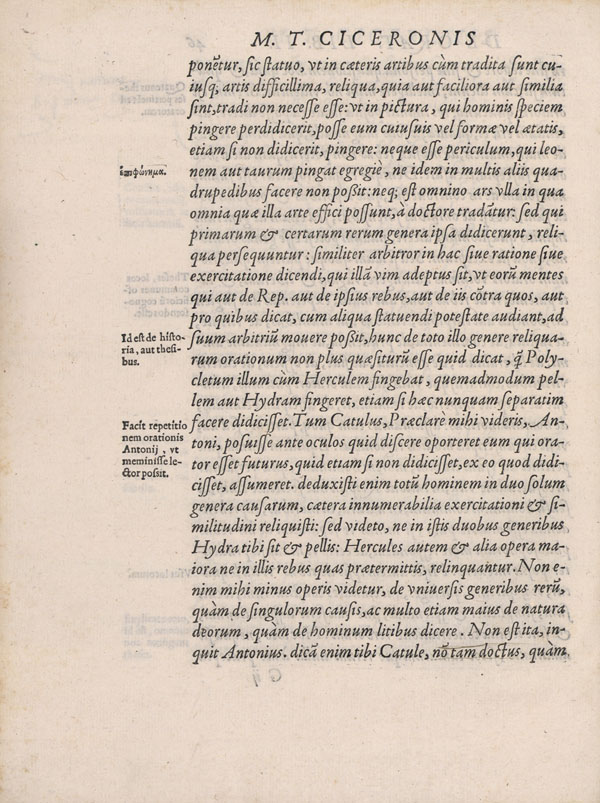 M. T. CICERONIS
ponẽtur, sic statuo, vt in cæteris artibus cùm tradita sunt cu-
iusq; artis difficillima, reliqua, quia aut faciliora aut similia
sint, tradi non necesse esse: vt in pictura, qui hominis speciem
pingere perdidicerit, posse eum cuiusuis vel formæ vel ætatis,
etiam si non didicerit, pingere: neque esse periculum, qui leo-
ἐπιφώνημα.
nem aut taurum pingat egregiè, ne idem in multis aliis qua-
drupedibus facere non poßit: neq; est omnino ars vlla in qua
omnia quæ illa arte effici possunt, à doctore tradãtur: sed qui
primarum & certarum rerum genera ipsa didicerunt, reli-
qua persequuntur: similiter arbitror in hac siue ratione siue
exercitatione dicendi, qui illã vim adeptus sit, vt eorũ mentes
qui aut de Rep. aut de ipsius rebus, aut de iis cõtra quos, aut
pro quibus dicat, cum aliqua statuendi potestate audiant, ad
Id est de histo-
ria, aut thesi-
bus.
suum arbitriũ mouere poßit, hunc de toto illo genere reliqua-
rum orationum non plus quæsiturũ esse quid dicat, q̃ Poly-
cletum illum cùm Herculem fingebat, quemadmodum pel-
lem aut Hydram fingeret, etiam si hæc nunquam separatim
Facit repetitio
nem orationis
Antonij, vt
meminisse le-
ctor possit.
facere didicisset. Tum Catulus, Præclarè mihi videris, An-
toni, posuisse ante oculos quid discere oporteret eum qui ora-
tor esset futurus, quid etiam si non didicisset, ex eo quod didi-
cisset, assumeret. deduxisti enim totũ hominem in duo solum
genera causarum, cætera innumerabilia exercitationi & si-
militudini reliquisti: sed videto, ne in istis duobus generibus
Hydra tibi sit & pellis: Hercules autem & alia opera ma-
iora ne in illis rebus quas prætermittis, relinquantur. Non e-
nim mihi minus operis videtur, de vniuersis generibus rerũ,
quàm de singulorum causis, ac multo etiam maius de natura
deorum, quàm de hominum litibus dicere. Non est ita, in-
quit Antonius. dicã enim tibi Catule, nõ tam doctus, quàm